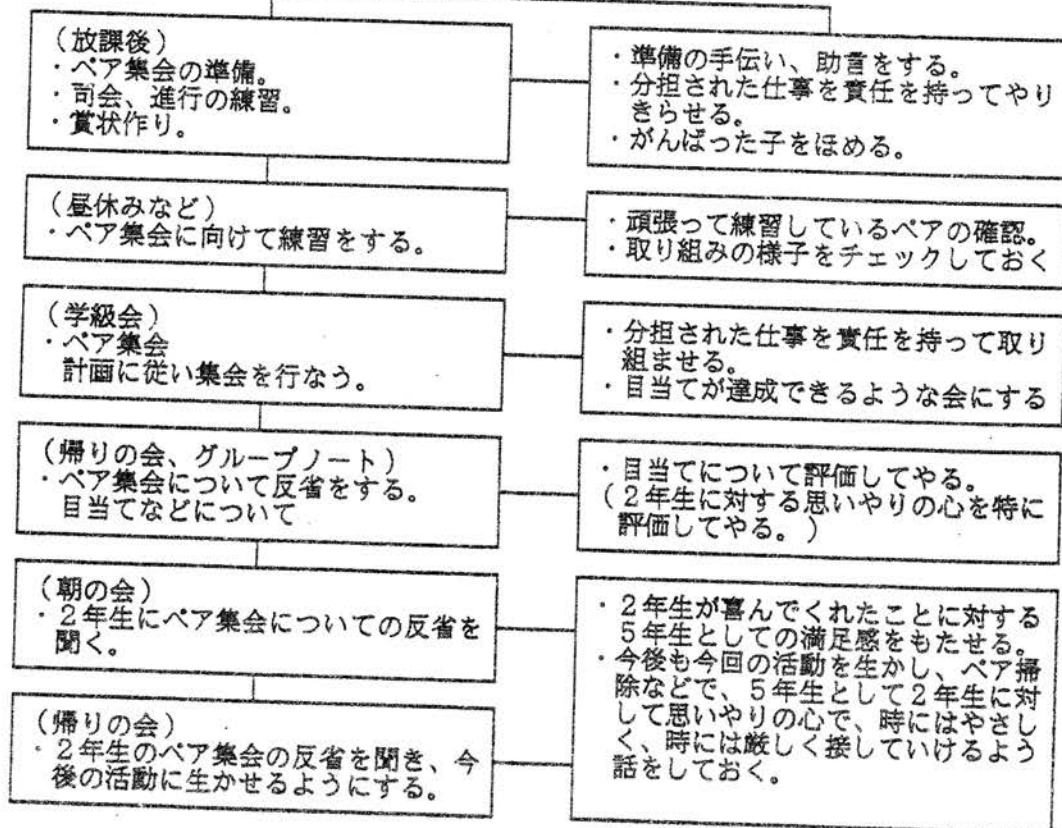 (放課後)
・ペア集会の準備。
・司会、進行の練習。
・賞状作り。
・準備の手伝い、助言をする。
・分担された仕事を責任を持ってやり
きらせる。
・がんばった子をほめる。
(昼休みなど)
・ペア集会に向けて練習をする。
・頑張って練習しているペアの確認。
・取り組みの様子をチェックしておく
(学級会)
・ペア集会
計画に従い集会を行なう。
・分担された仕事を責任を持って取り
組ませる。
・目当てが達成できるような会にする
(帰りの会、グループノート)
・ペア集会について反省をする。
目当てなどについて
・目当てについて評価してやる。
(2年生に対する思いやりの心を特に
評価してやる。)
(朝の会)
・2年生にペア集会についての反省を
聞く。
・2年生が喜んでくれたことに対する
5年生としての満足感をもたせる。
・今後も今回の活動を生かし、ペア掃
除などで、5年生として2年生に対
して思いやりの心で、時にはやさし
く、時には厳しく接していけるよう
話をしておく。
(帰りの会)
・2年生のペア集会の反省を聞き、今
後の活動に生かせるようにする。